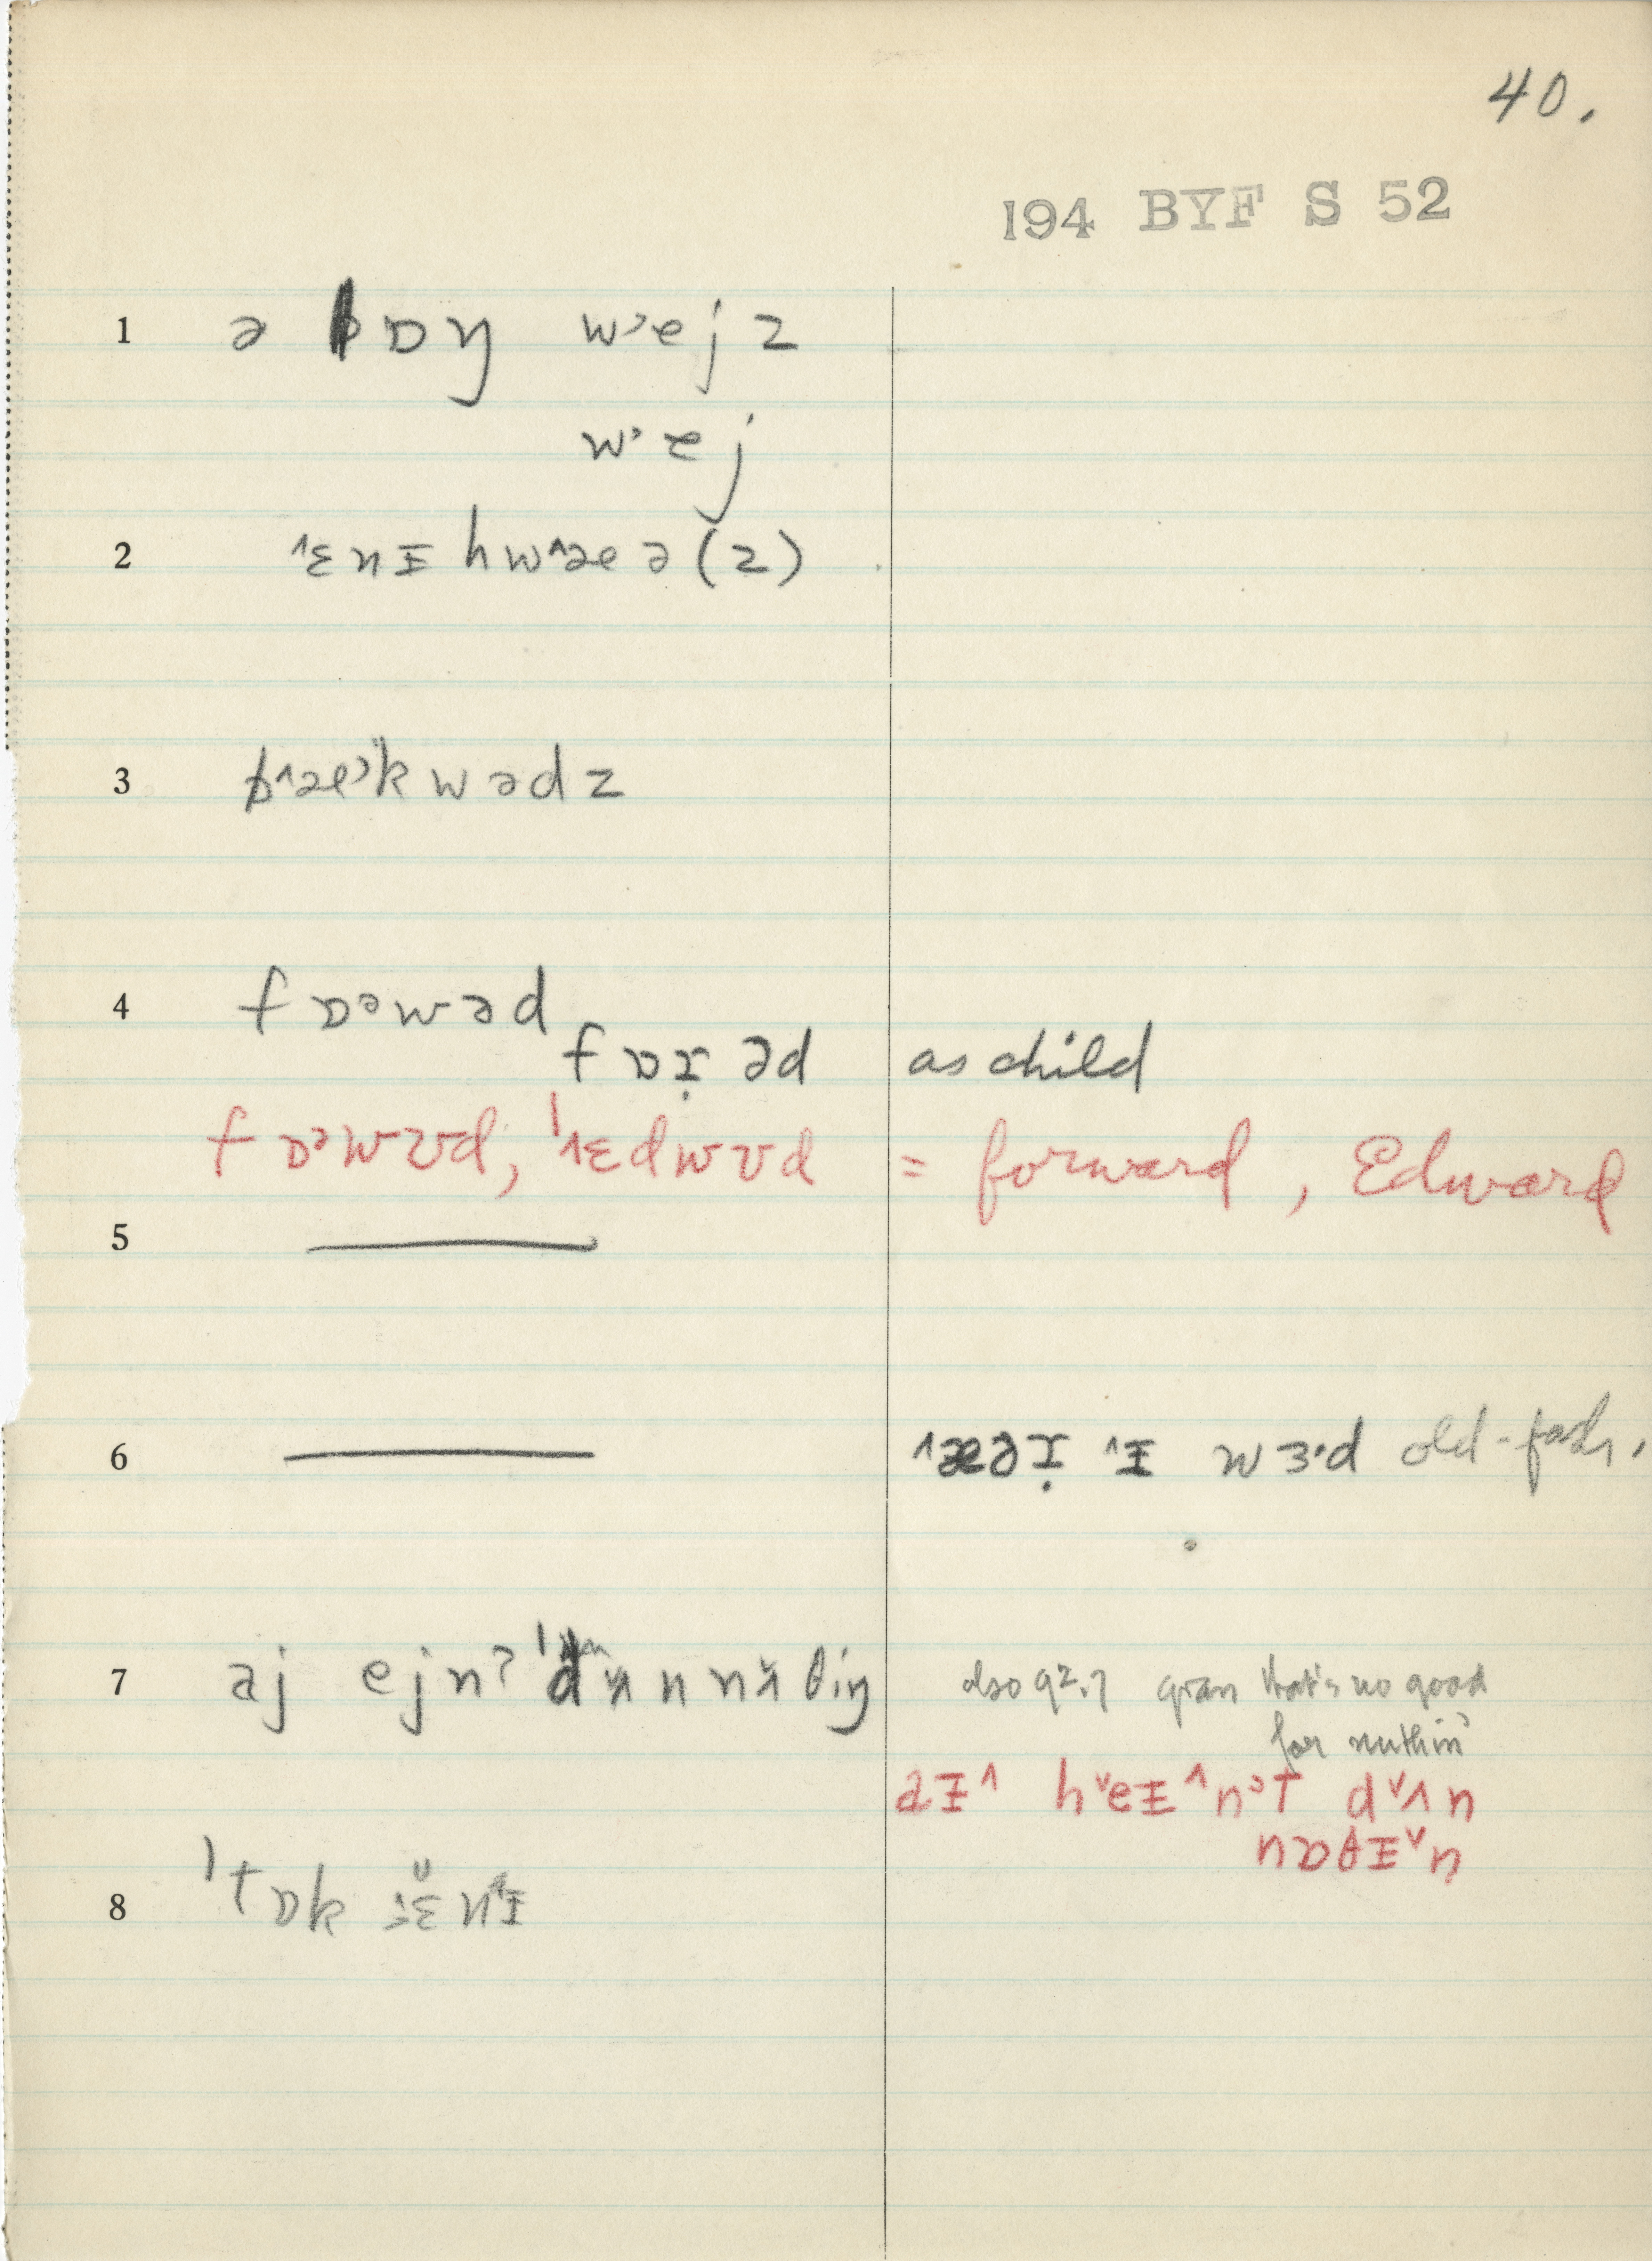 40.
194 BYF S 52
1 ə lɒŋ w›ejz
w›ej
2 ˄ɛnɪ hw˄æə(z)
3 b˄æ›kwədz
4 fɒᵊwəd
fɒɪ̣əd as child
fɒ›wʊd, ˈ˄ɛdwʊd = forward, Edward
5 —
6 — ˄æəɪ̣ ˄ɪ wɜ·d old-fash.
7 aj ejnʔ ˈdʌn nʌθiŋ also q². ? gran that's no good
for nuthin'
aɪ˄ h˅eɪ˄n›t d˅ʌn
nɒθɪ˅n
8 ˈtɒk ɛnɪ